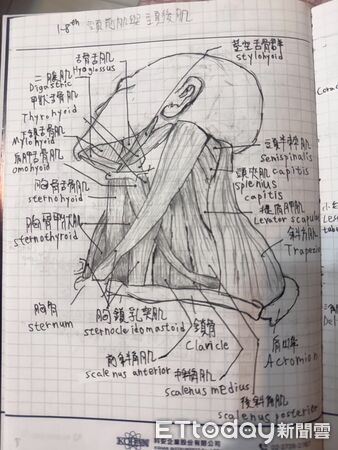 1-8th 頸前肌與頸後肌
舌骨舌肌
Hyoglossus
莖突舌骨肌群
stylohyoid
二腹肌
Digastric
甲狀舌骨肌
Thyrohyoid
下頜舌骨肌
Mylohyoid
肩胛舌骨肌
omohyoid
胸骨舌骨肌
sternohyoid
胸骨甲狀肌
sternothyroid
頭半棘肌
semispinalis
capitis
頭夾肌
splenius
capitis
提肩胛肌
Levator scapulae
斜方肌
Trapezi
胸骨
sternum
胸鎖乳突肌
sternocleidomastoid
鎖骨
Claricle
肩峰
Acromion
前斜角肌
scalenus anterior
中斜角肌
scalenus medius
後斜角肌
scalenus posterior
科安企業股份有限公司
ETtoday新聞雲